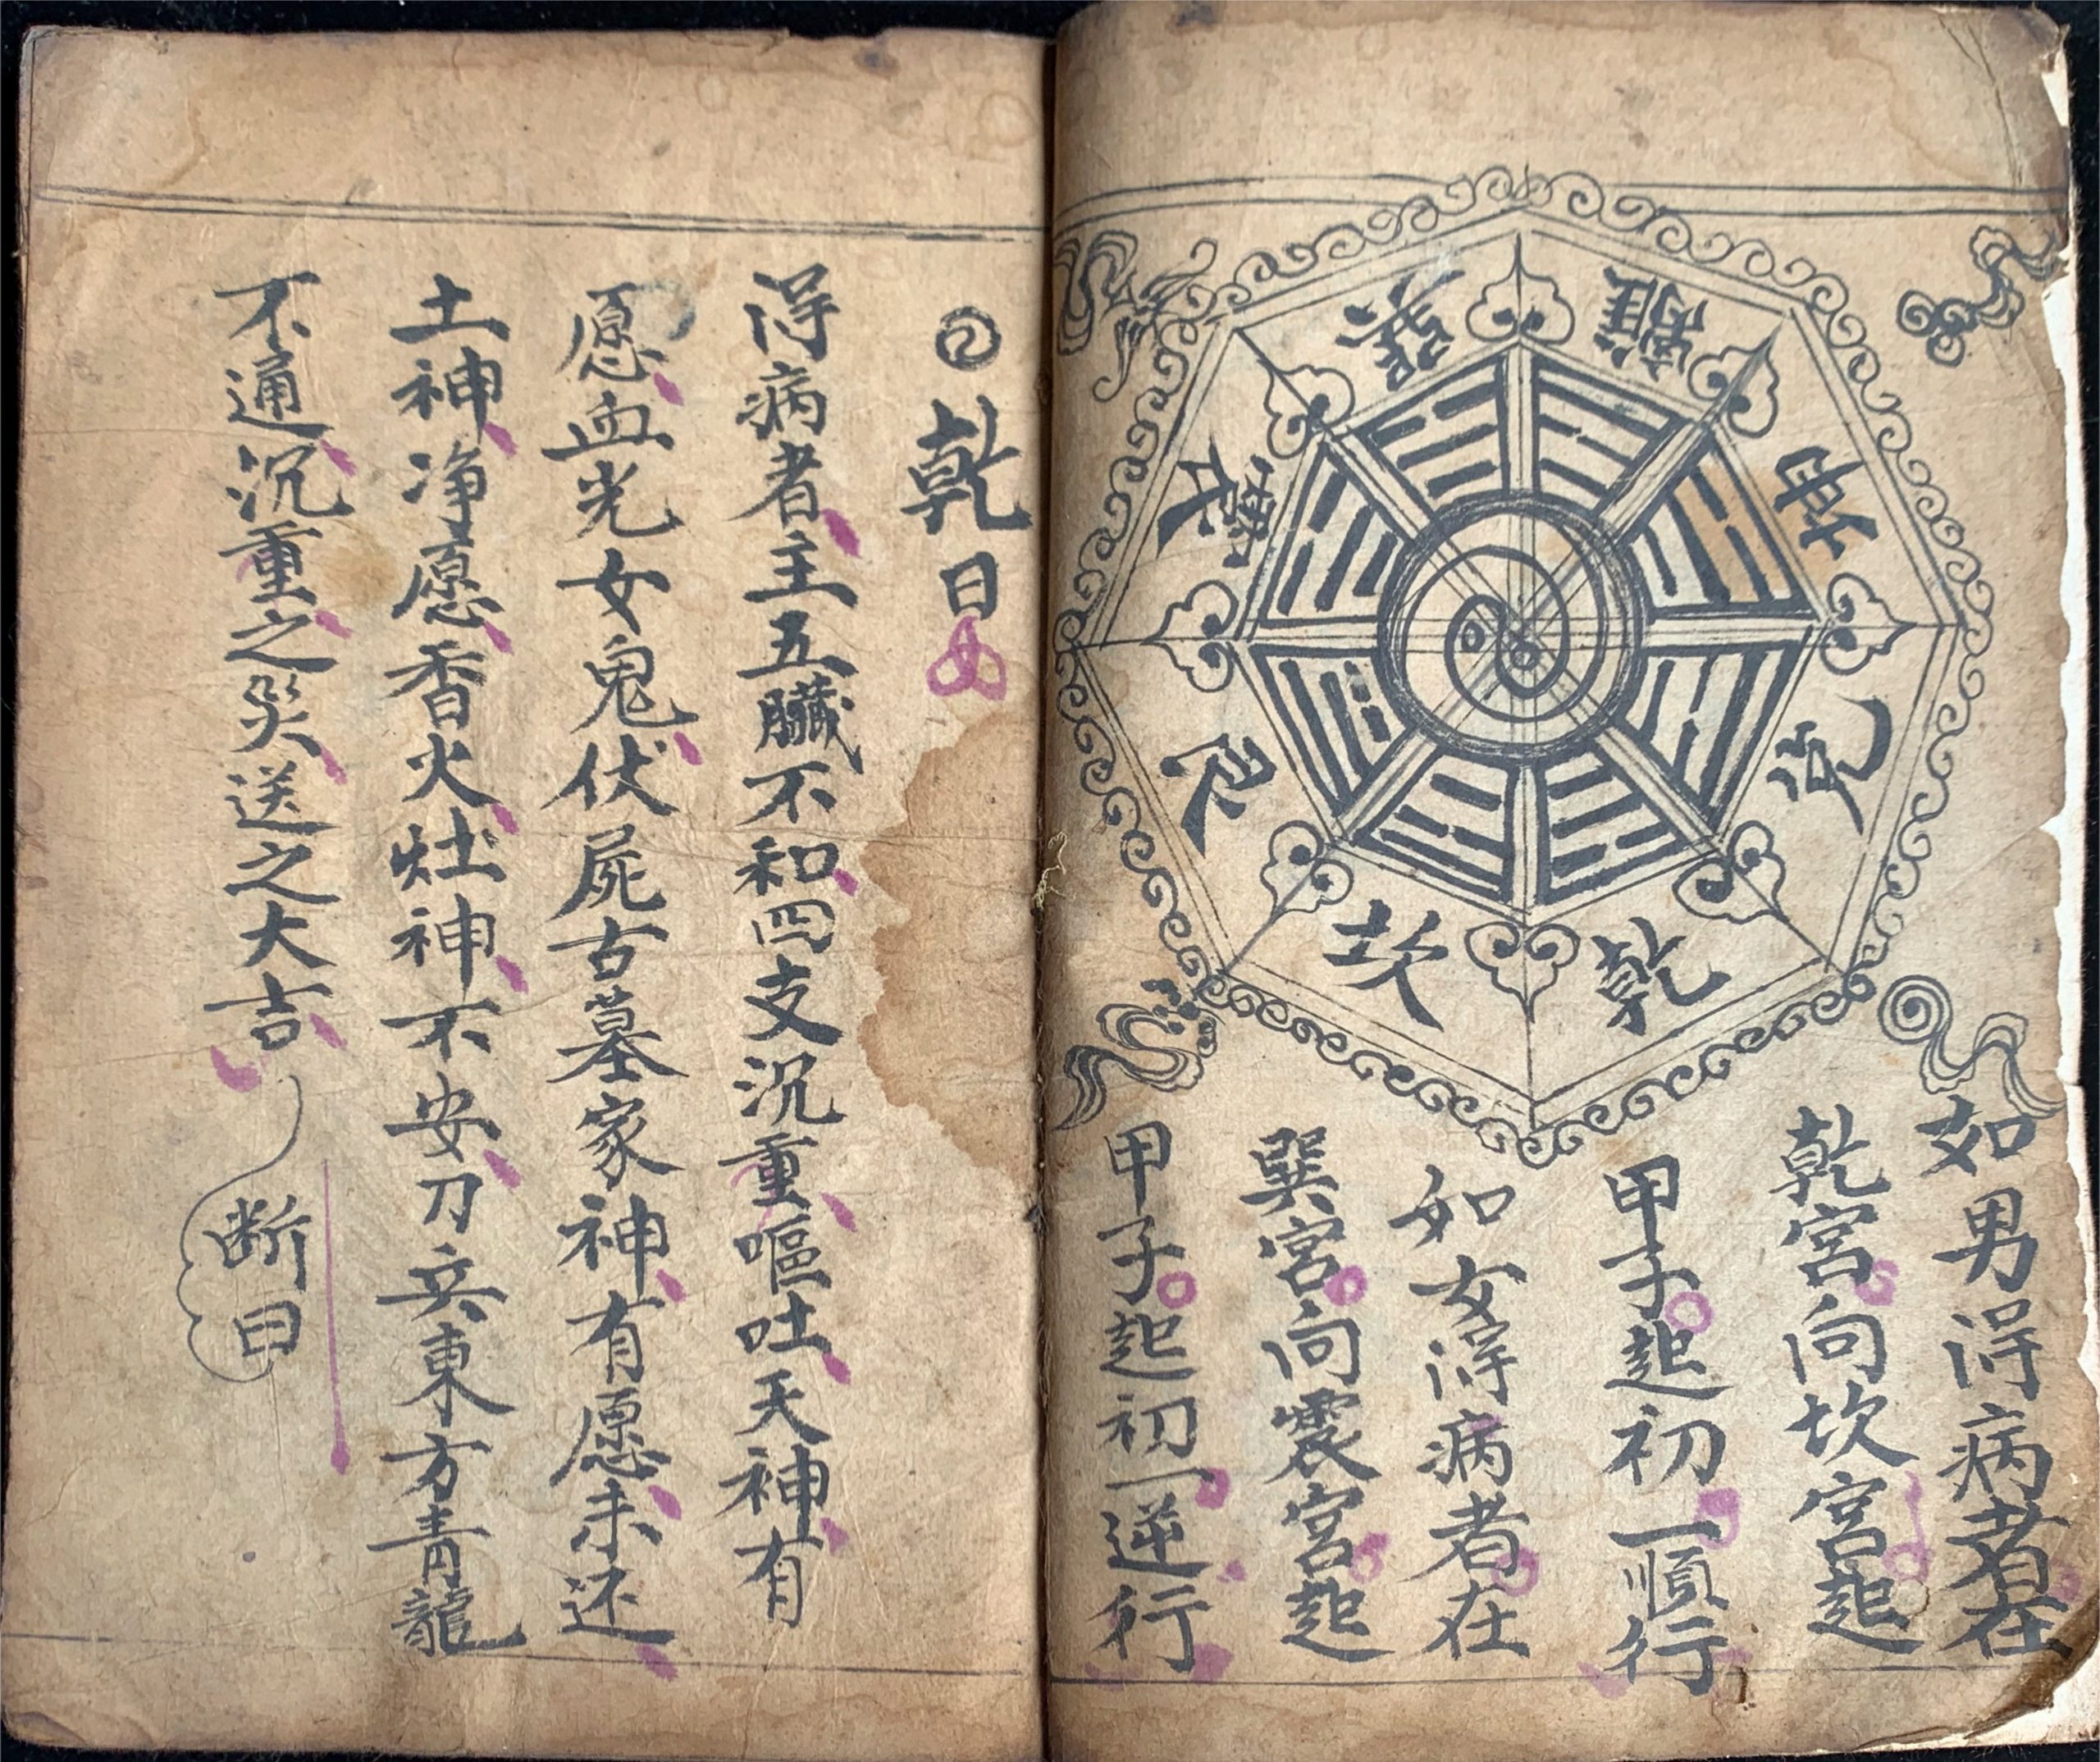 巽
離
坤
兌
乾
坎
艮
震
如男得病者在
乾宮向坎宮起
甲子起初一順行
如女得病者在
巽宮向震宮起
甲子起初一逆行
乾日
得病者主五臟不和四支沉重嘔吐天神有
愿血光女鬼伏屍古墓家神有愿未还
土神净愿香火灶神不安刀兵東方青龍
不通沉重之災送之大吉
断曰